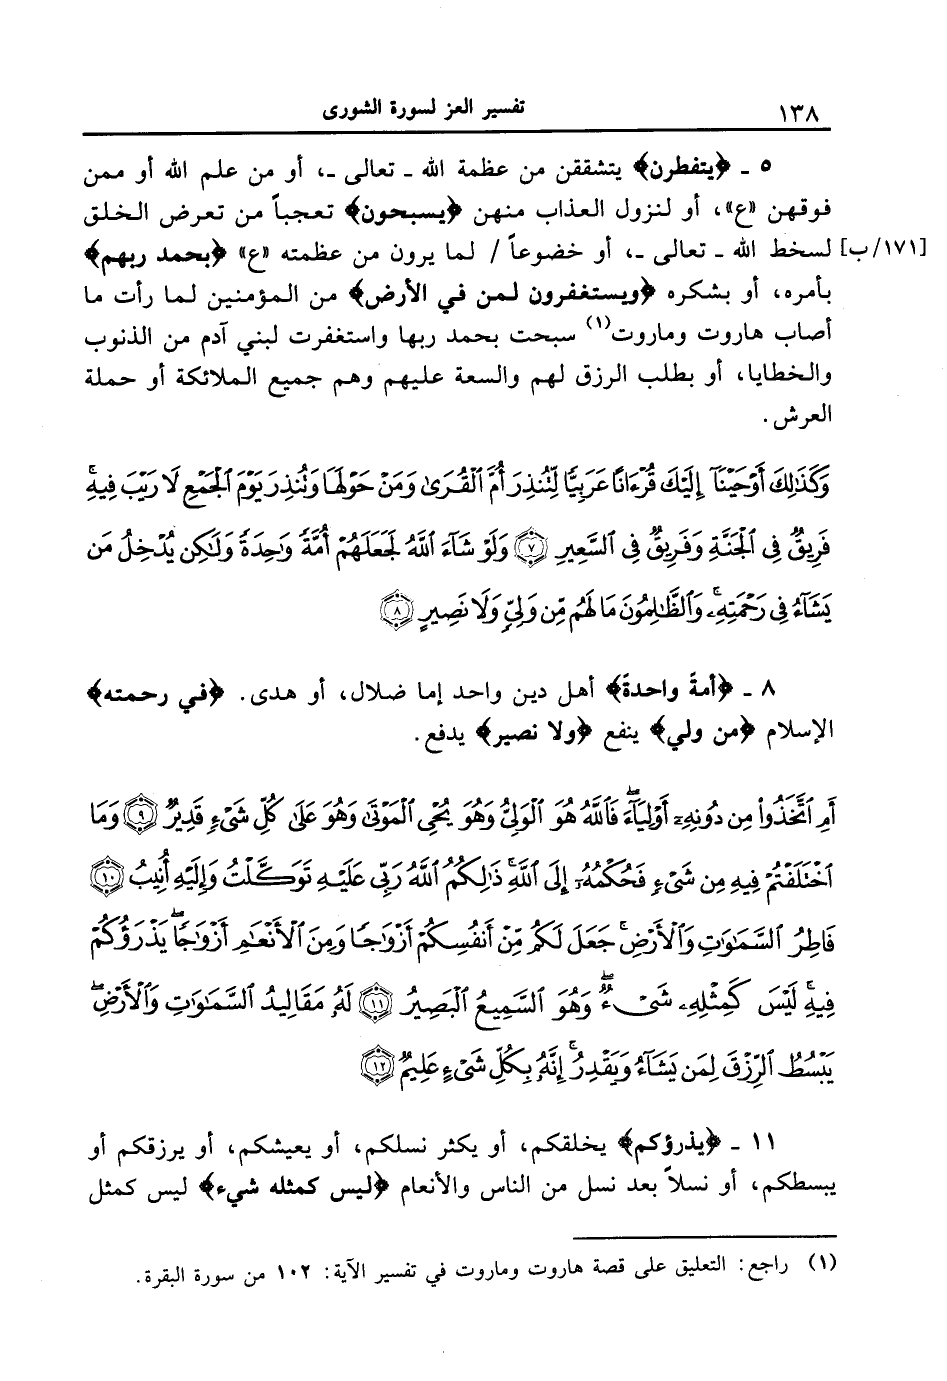 ١٣٨ تفسير العز لسورة الشورى
٥ ـ ﴿يتفطرن﴾ يتشققن من عظمة الله ـ تعالى ـ، أو من علم الله أو ممن
فوقهن «ع»، أو لنزول العذاب منهن ﴿يسبحون﴾ تعجباً من تعرض الخلق
[١٧١/ب] لسخط الله ـ تعالى ـ، أو خضوعاً / لما يرون من عظمته «ع» ﴿بحمد ربهم﴾
بأمره، أو بشكره ﴿ويستغفرون لمن في الأرض﴾ من المؤمنين لما رأت ما
أصاب هاروت وماروت(١) سبحت بحمد ربها واستغفرت لبني آدم من الذنوب
والخطايا، أو بطلب الرزق لهم والسعة عليهم وهم جميع الملائكة أو حملة
العرش.
وَكَذَٰلِكَ أَوْحَيْنَآ إِلَيْكَ قُرْءَانًا عَرَبِيًّا لِّتُنذِرَ أُمَّ ٱلْقُرَىٰ وَمَنْ حَوْلَهَا وَتُنذِرَ يَوْمَ ٱلْجَمْعِ لَا رَيْبَ فِيهِ ۚ
فَرِيقٌ فِى ٱلْجَنَّةِ وَفَرِيقٌ فِى ٱلسَّعِيرِ ۝٧ وَلَوْ شَآءَ ٱللَّهُ لَجَعَلَهُمْ أُمَّةً وَٰحِدَةً وَلَٰكِن يُدْخِلُ مَن
يَشَآءُ فِى رَحْمَتِهِۦ ۚ وَٱلظَّٰلِمُونَ مَا لَهُم مِّن وَلِىٍّ وَلَا نَصِيرٍ ۝٨
٨ ـ ﴿أمة واحدة﴾ أهل دين واحد إما ضلال، أو هدى. ﴿في رحمته﴾
الإسلام ﴿من ولي﴾ ينفع ﴿ولا نصير﴾ يدفع.
أَمِ ٱتَّخَذُوا۟ مِن دُونِهِۦٓ أَوْلِيَآءَ ۖ فَٱللَّهُ هُوَ ٱلْوَلِىُّ وَهُوَ يُحْىِ ٱلْمَوْتَىٰ وَهُوَ عَلَىٰ كُلِّ شَىْءٍ قَدِيرٌ ۝٩ وَمَا
ٱخْتَلَفْتُمْ فِيهِ مِن شَىْءٍ فَحُكْمُهُۥٓ إِلَى ٱللَّهِ ۚ ذَٰلِكُمُ ٱللَّهُ رَبِّى عَلَيْهِ تَوَكَّلْتُ وَإِلَيْهِ أُنِيبُ ۝١٠
فَاطِرُ ٱلسَّمَٰوَٰتِ وَٱلْأَرْضِ ۚ جَعَلَ لَكُم مِّنْ أَنفُسِكُمْ أَزْوَٰجًا وَمِنَ ٱلْأَنْعَٰمِ أَزْوَٰجًا ۖ يَذْرَؤُكُمْ
فِيهِ ۚ لَيْسَ كَمِثْلِهِۦ شَىْءٌ ۖ وَهُوَ ٱلسَّمِيعُ ٱلْبَصِيرُ ۝١١ لَهُۥ مَقَالِيدُ ٱلسَّمَٰوَٰتِ وَٱلْأَرْضِ ۖ
يَبْسُطُ ٱلرِّزْقَ لِمَن يَشَآءُ وَيَقْدِرُ ۚ إِنَّهُۥ بِكُلِّ شَىْءٍ عَلِيمٌ ۝١٢
١١ ـ ﴿يذرؤكم﴾ يخلقكم، أو يكثر نسلكم، أو يعيشكم، أو يرزقكم أو
يبسطكم، أو نسلاً بعد نسل من الناس والأنعام ﴿ليس كمثله شيء﴾ ليس كمثل
(١) راجع: التعليق على قصة هاروت وماروت في تفسير الآية: ١٠٢ من سورة البقرة.